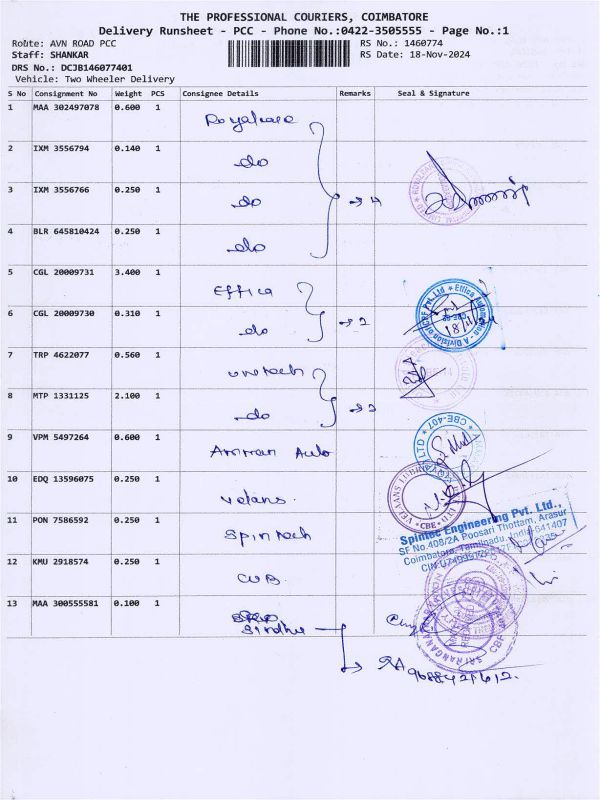 THE PROFESSIONAL COURIERS, COIMBATORE
Delivery Runsheet - PCC - Phone No.:0422-3505555 - Page No.:1
Route: AVN ROAD PCC RS No.: 1460774
Staff: SHANKAR RS Date: 18-Nov-2024
DRS No.: DCJB146077401
Vehicle: Two Wheeler Delivery
S No Consignment No Weight PCS Consignee Details Remarks Seal & Signature
1 MAA 302497078 0.600 1 Royalcare
2 IXM 3556794 0.140 1 do
3 IXM 3556766 0.250 1 do → 4
4 BLR 645810424 0.250 1 do
5 CGL 20009731 3.400 1 Effica
6 CGL 20009730 0.310 1 do → 2
7 TRP 4622077 0.560 1
8 MTP 1331125 2.100 1 do
9 VPM 5497264 0.600 1 Amman Auto
10 EDQ 13596075 0.250 1 Velans
11 PON 7586592 0.250 1 Spintech
12 KMU 2918574 0.250 1 CUB
13 MAA 300555581 0.100 1 Sindhu
Effica Automation - A Division of CRF Pvt. Ltd
18/11/24
CBE-407
CBE
Spintec Engineering Pvt. Ltd.,
SF No.408/2A Poosari Thottam, Arasur
Coimbatore, Tamilnadu, India 641407